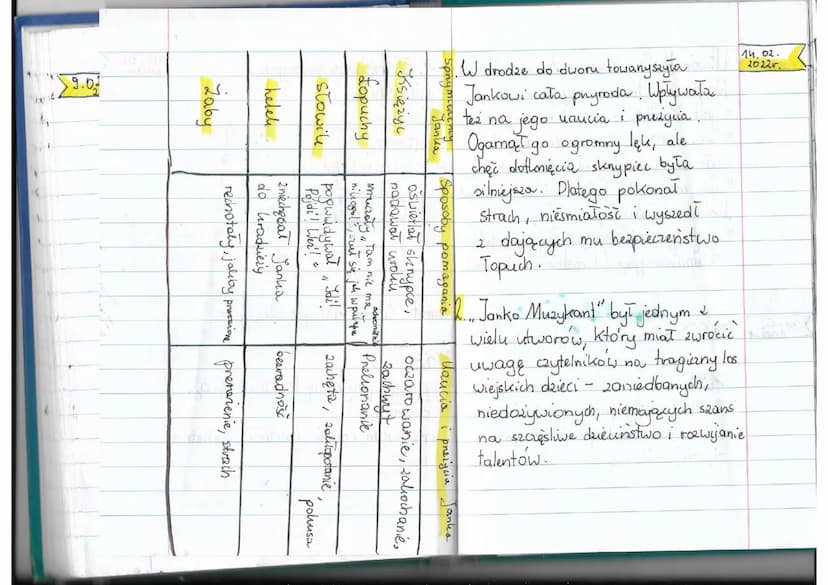 9.0
Sprzymierzeńcy Janka
Sposoby pomagania
Uczucia i przeżycia Janka
Księżyc
oświetlał skrzypce,
nadawał uroku
oczarowanie, zakochanie,
zachwyt
Łopuchy
mruczały „Tam nie ma
nikogo",
Przekonanie
słowik
pogwizdywał „Idź!
Pójdź! Weź!"
zachęta, zakłopotanie,
pokusa
lelek
zniechęcał Janka
do kradzieży
bezradność
Żaby
rechotały, jakby przerażone
przerażenie, strach
14.02.
2022r.
W drodze do dworu towarzyszyła
Jankowi cała przyroda. Wpływała
też na jego uczucia i przeżycia.
Ogarnął go ogromny lęk, ale
chęć dotknięcia skrzypiec była
silniejsza. Dlatego pokonał
strach, nieśmiałość i wyszedł
z dających mu bezpieczeństwo
Łopuch.
2. „Janko Muzykant" był jednym z
wielu utworów, który miał zwrócić
uwagę czytelników na tragiczny los
wiejskich dzieci – zaniedbanych,
niedożywionych, niemających szans
na szczęśliwe dzieciństwo i rozwijanie
talentów.